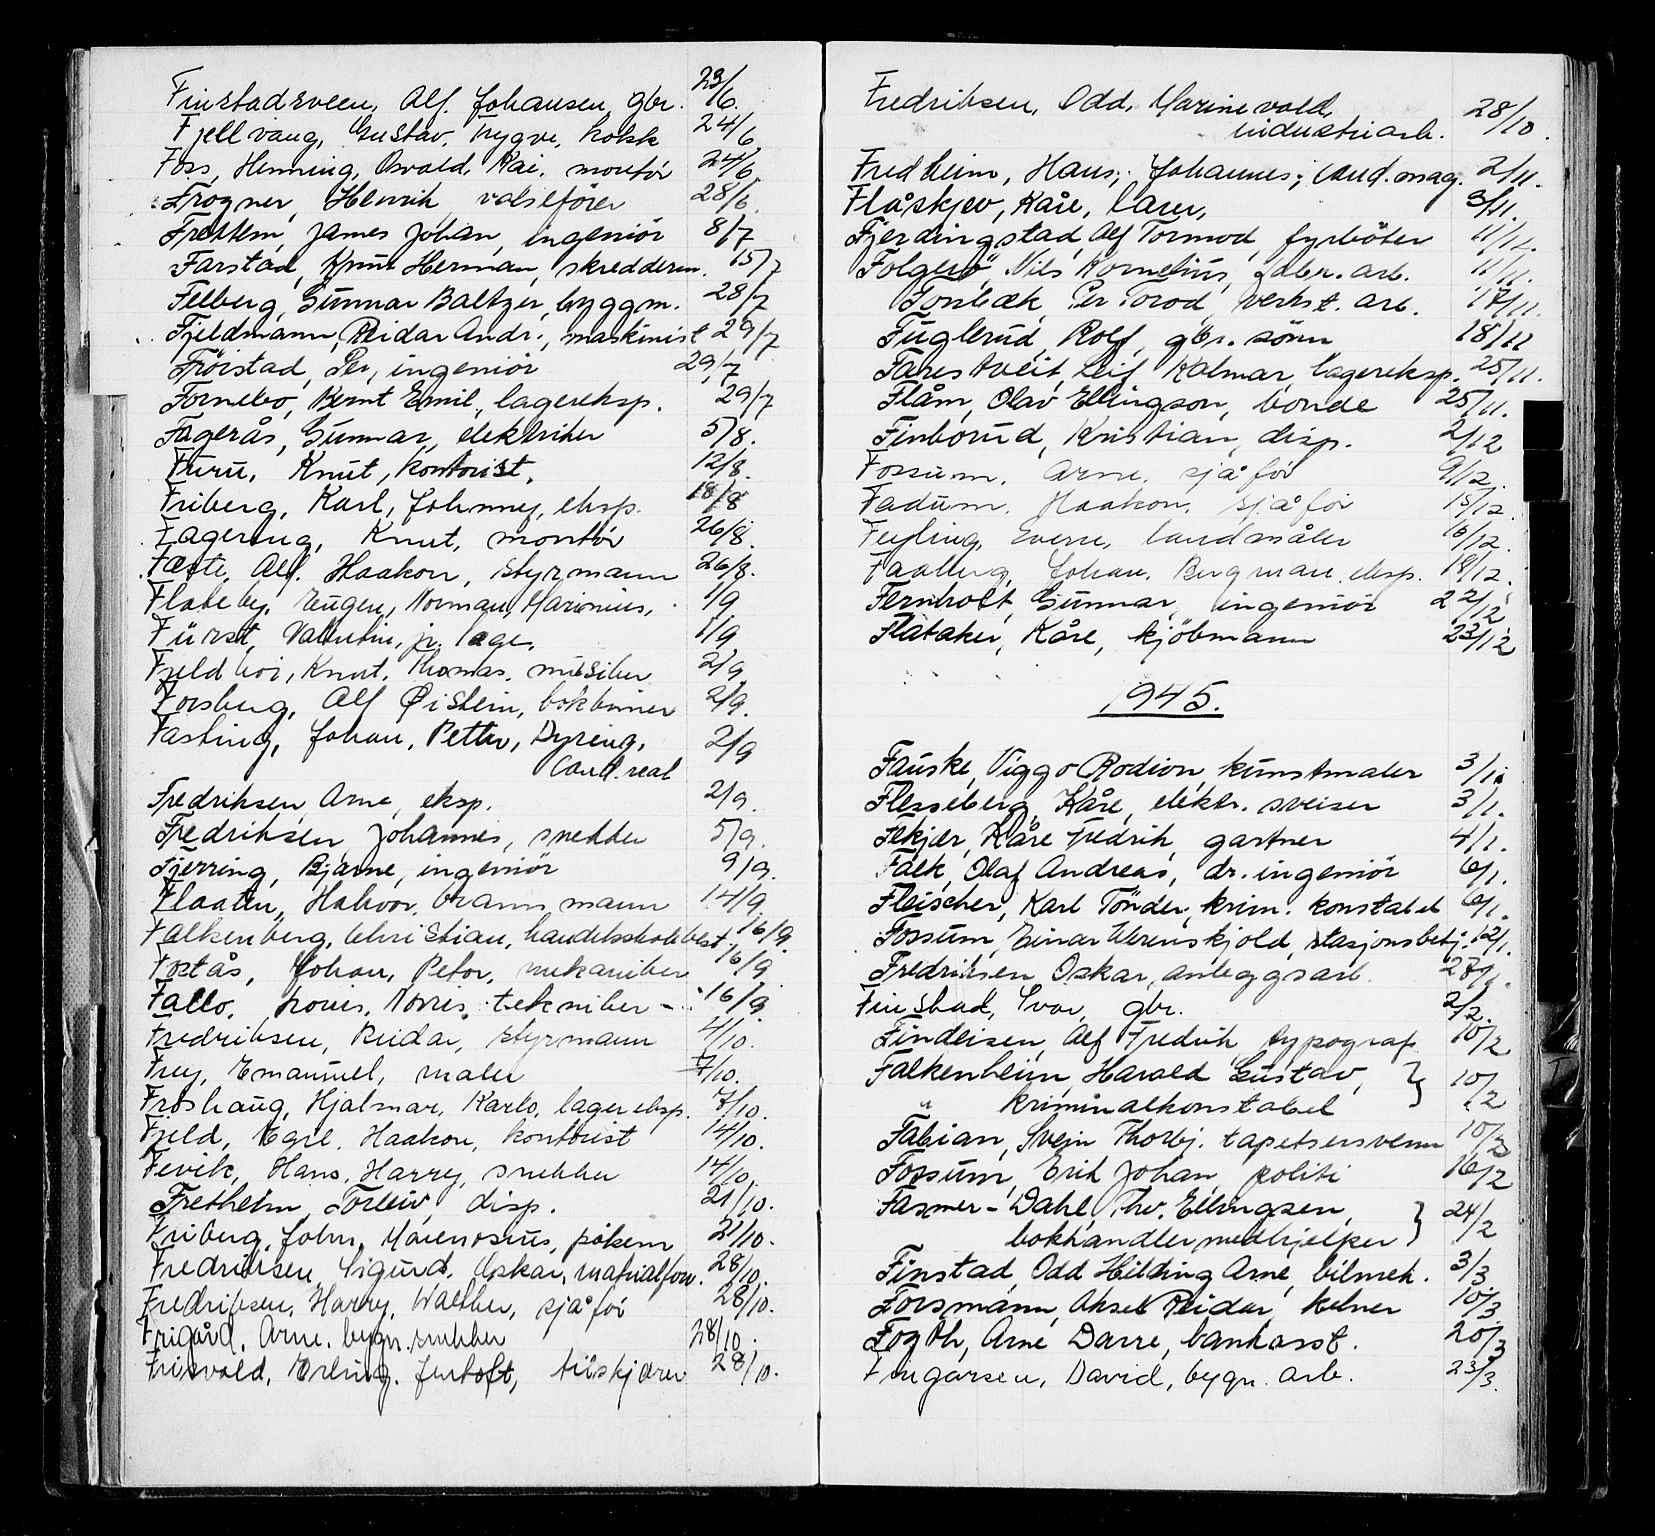 Finstadsveen, Alf. Johansen, gbr. 23/6.
Fjellvang, Gustav, Trygve, kokk 24/6
Foss, Henning, Osvald, Kai. montör 24/6
Frogner, Henrik, valseförer 28/6.
Frettem, James Johan, ingeniör 8/7
Farstad, Knut Herman, skreddersv. 15/7
Felberg, Gunnar Baltzer, byggm. 28/7
Fjeldmann, Reidar Andr., maskinist 29/7
Fröistad, Per, ingeniör 29/7
Fornebo, Bernt Emil, lagereksp. 29/7
Fagerås, Gunnar, elektriker 5/8.
Furu, Knut, kontorist. 12/8.
Friberg, Karl, Johnny, eksp. 18/8
Fagereng, Knut, montör 26/8.
Fæste, Alf. Haakon, styrmann 26/8.
Flateby, Eugen, Norman, Marinius, 1/9
Fürst, Valentin, jr. læge. 1/9
Fjeldhoi, Knut. Thomas. musiker 2/9
Forsberg, Alf Øistein, bokbinner 2/9.
Fasting, Johan, Petter, Dyring,
Cand. real 2/9
Fredriksen, Arne, eksp. 2/9.
Fredriksen, Johannes, snekker 5/9.
Fjerring, Bjarne, ingeniör 9/9.
Flaaten, Halvor, brannmann 14/9.
Falkenberg, Christian, handelsskolebest. 16/9.
Fostås, Johan, Peter, mekaniker 16/9
Fallo, Louis, Norris, tekniker - 16/9
Fredriksen, Reidar, styrmann 4/10.
Frey, Emanuel, maler 7/10.
Froshaug, Hjalmar, Karlo, lagereksp. 7/10.
Fjeld, Egil, Haakon, kontorist 14/10.
Fevik, Hans, Harry, snekker 14/10.
Fretheim, Torleiv, disp. 21/10.
Friberg, John, Marenosius, pökem 21/10.
Fredriksen, Sigurd, Oskar, matrialforv. 28/10.
Fredriksen, Harry, Walther, sjåför 28/10.
Frigård, Arne. bygn. snekker 28/10.
Frisvold, Erling. Jentoft, tilskjærer 28/10.
Fredriksen, Odd, Marinevold,
industriarb. 28/10.
Fredheim, Hans; Johannes; Cand. mag. 2/11.
Flåskjev, Kåre, lærer, 3/11.
Fjerdingstad, Alf Tormod, fyrböter 11/12.
Folgerö, Nils Kornelius, fabr. arb. 11/11.
Fonbæk, Per Torod, verkst. arb. 17/11.
Fuglerud, Rolf, gbr. sönn 18/11
Farestveit, Leif Kalmar, lagereksp. 25/11.
Flåm, Olav Ellingson, bonde 25/11.
Finborud, Kristian, disp. 2/12
Fossum, Arne, sjåför 9/12.
Fadum, Haakon, sjåför 15/12.
Fugling, Sverre, landmåler 16/12.
Faaberg, Johan. Bergman. eksp. 18/12.
Fernholt, Gunnar, ingeniör 22/12.
Flataker, Kåre, kjöbmann 23/12
1945.
Fauske, Viggo Rodion, kunstmaler 3/1.
Flesseberg, Kåre, elektr. sveiser 3/1.
Flekjær, Kåre Fredrik, gartner 4/1.
Falk, Olaf Andreas, dr. ingeniör 6/1.
Fleischer, Karl Tönder, krim. konstabel 6/1.
Fossum, Einar Werenskjold, stasjonsbetj. 12/1.
Fredriksen Oskar, anleggsarb.
Finstad, Ivar, gbr. 2/2.
Findeisen, Alf Fredrik typograf 10/2
Falkenheim, Harald Gustav, }
" kriminalkonstabel } 10/2
Fabian, Svein Thorbj. tapetsersvenn 10/2
Fossum, Erik Johan, politi 16/2
Fasmer-Dahl, Thv. Ellingsen, }
bokhandlermedhjelper } 24/2
Finstad, Odd Hilding Arne, bilmek. 3/3
Forsmann, Aksel Reidar, kelner 10/3.
Fogth, Arne Darre, bankasst. 20/3
Fingarsen, David, bygn. arb. 23/3.